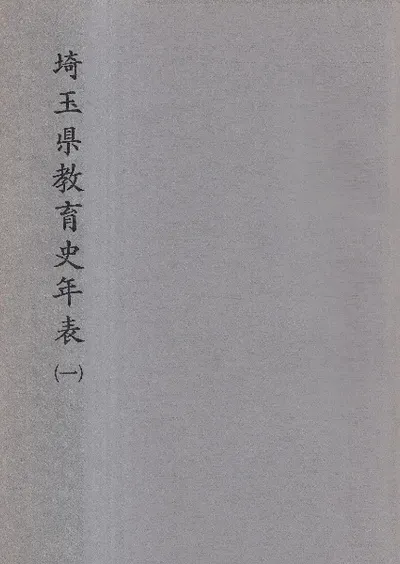 埼玉県教育史年表(一)